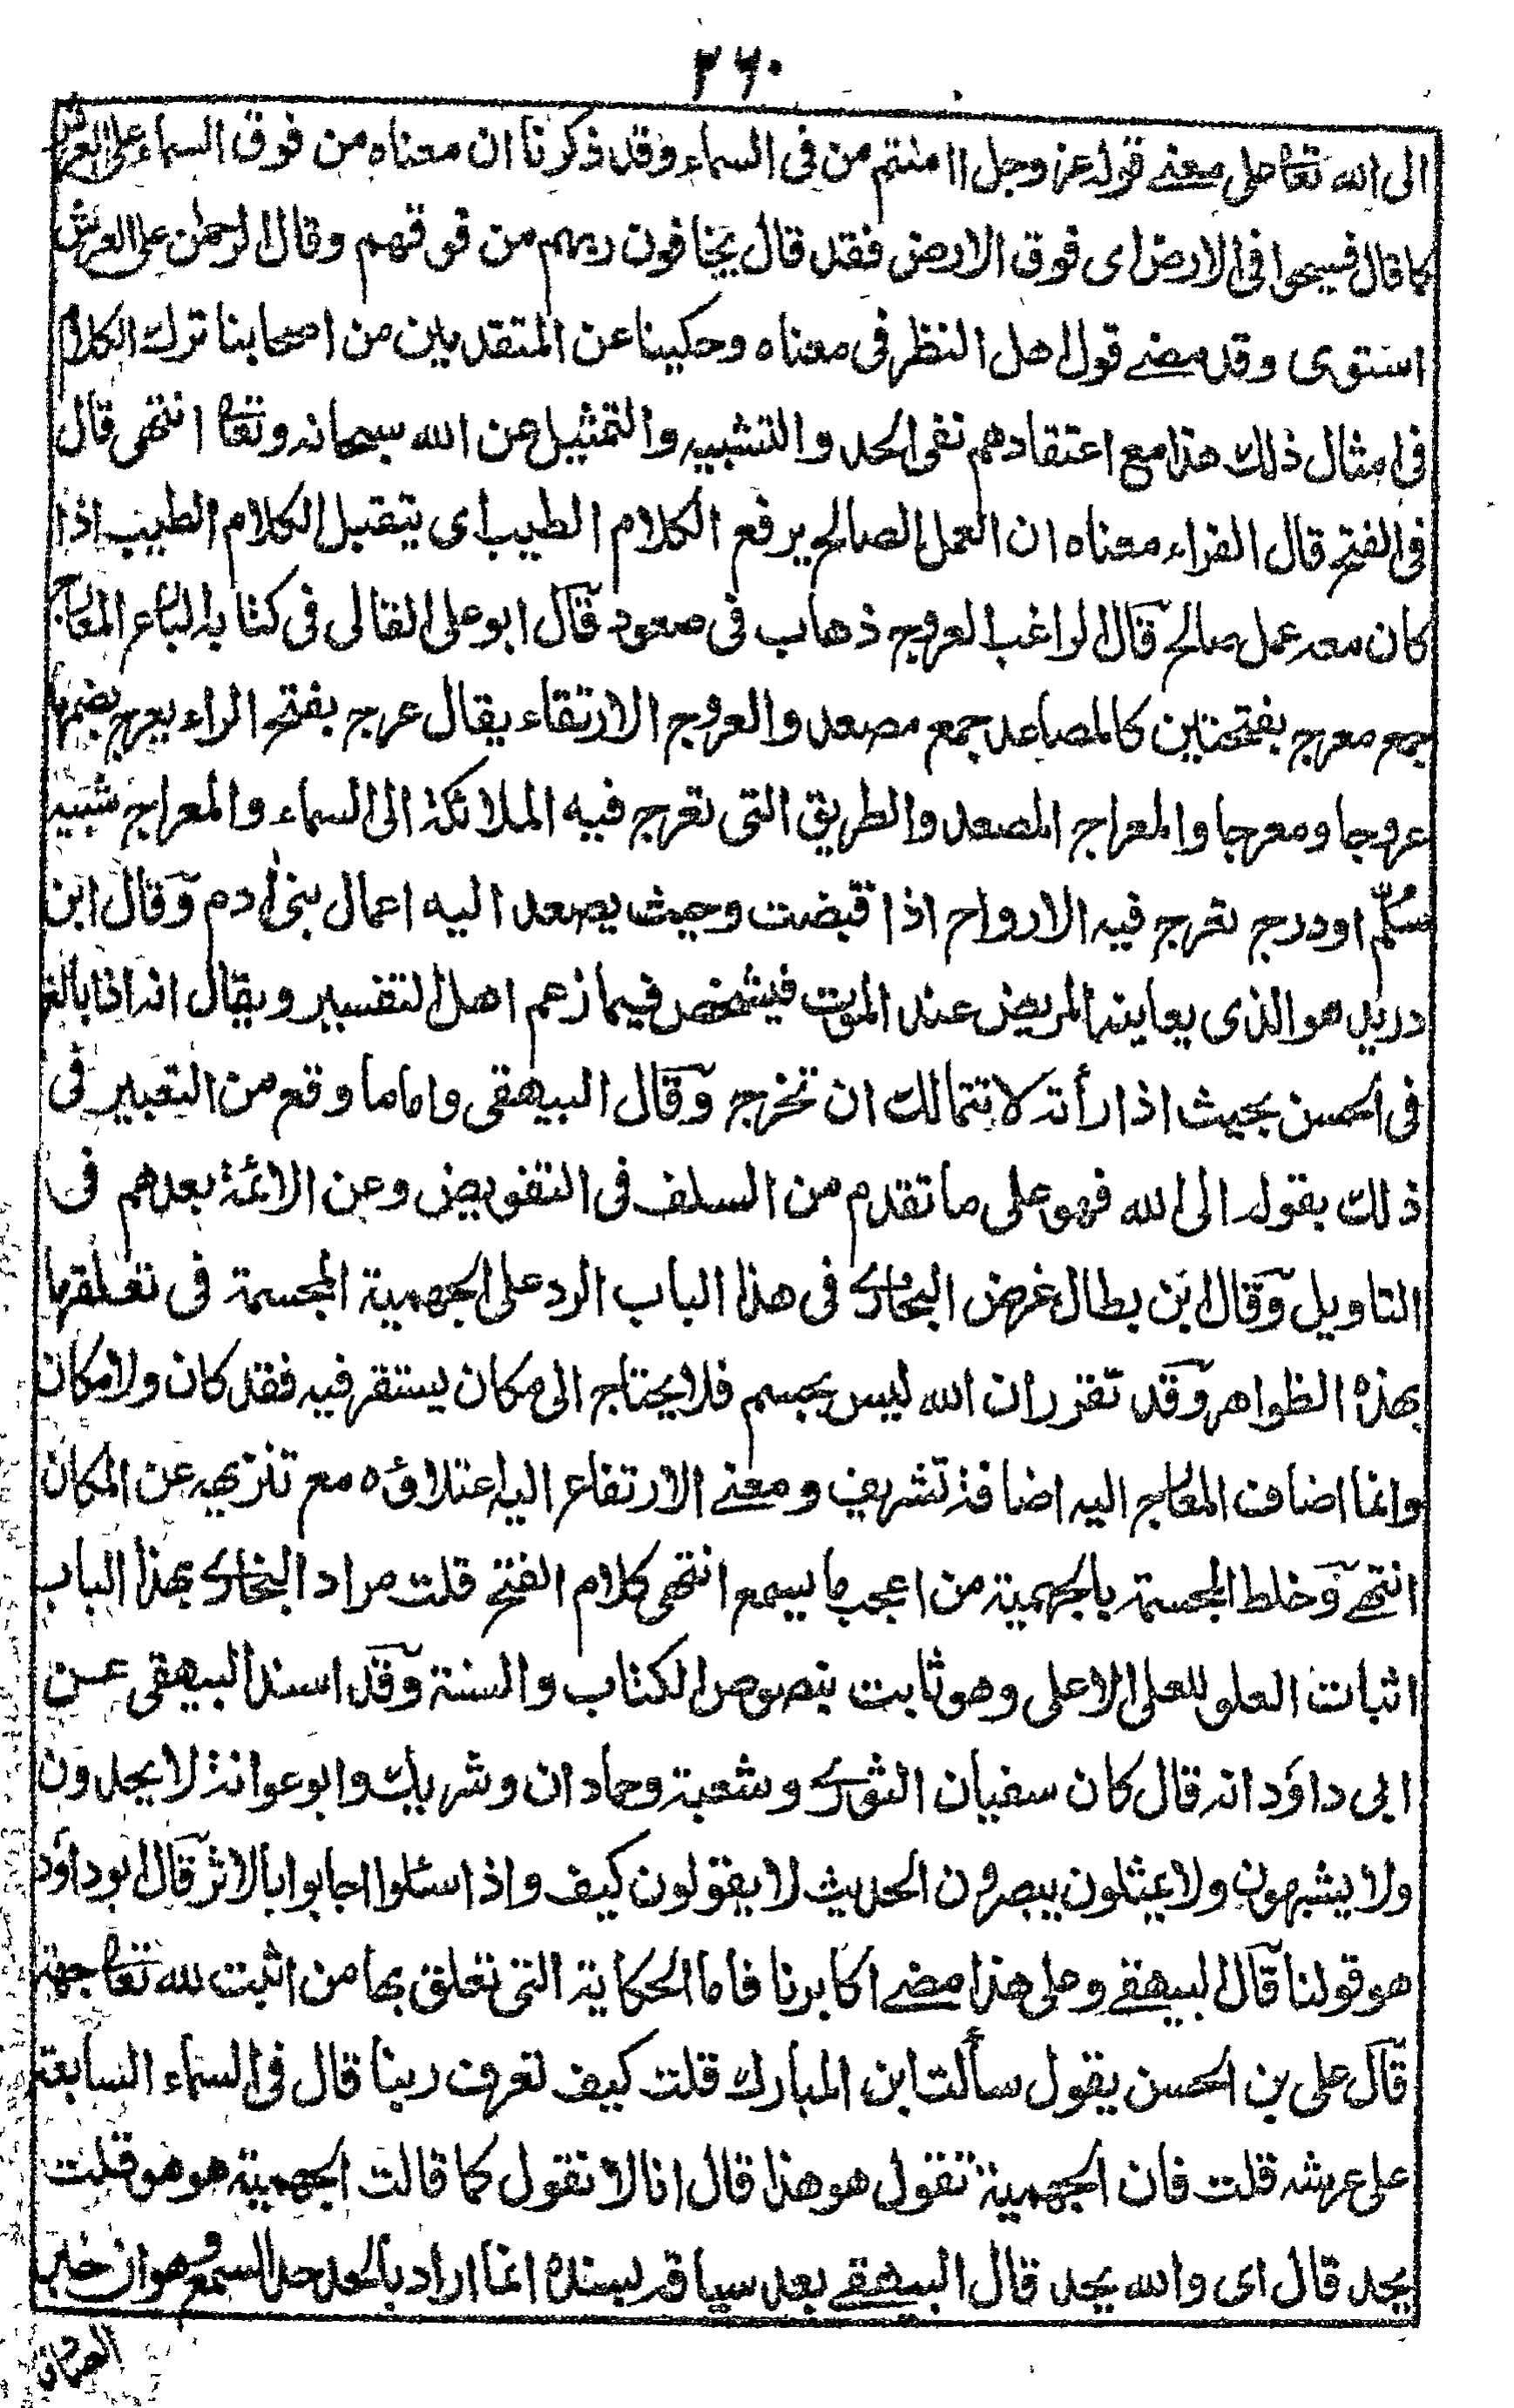 ٢٦٠
الى الله تعا على معنے قوله عز وجل أامنتم من فى السماء وقد ذكرنا ان معناه من فوق السماء على العرش
كما قال فسيحوا فى الارض اى فوق الارض فقد قال يخافون ربهم من فوقهم وقال الرحمن على العرش
استوى وقد مضے قول اهل النظر فى معناه وحكينا عن المتقدمين من اصحابنا ترك الكلام
فى امثال ذلك هذا مع اعتقادهم نفى الحد والتشبيه والتمثيل عن الله سبحانه وتعا انتهى قال
فى الفتح قال الفراء معناه ان العمل الصالح يرفع الكلام الطيب اى يتقبل الكلام الطيب اذا
كان معه عمل صالح قال الراغب العروج ذهاب فى صعود قال ابو على القالى فى كتابه البارع المعارج
جمع معرج بفتحتين كالمصاعد جمع مصعد والعروج الارتقاء يقال عرج بفتح الراء يعرج بضمها
عروجا ومعرجا والمعراج المصعد والطريق التى تعرج فيه الملائكة الى السماء والمعراج شبيه
سُلّم او درج تعرج فيه الارواح اذا قبضت وحيث يصعد اليه اعمال بنى ادم وقال ابن
دريد هو الذى يعاينه المريض عند الموت فيشخص فيما زعم اهل التفسير ويقال انه
فى الحسن بحيث اذا رأته لا تتمالك ان تخرج وقال البيهقى واما ما وقع من التعبير فى
ذلك بقوله الى الله فهو على ما تقدم من السلف فى التفويض وعن الائمة بعدهم فى
التاويل وقال ابن بطال غرض البخارى فى هذا الباب الرد على الجهمية المجسمة فى تعلقها
بهذه الظواهر وقد تقرر ان الله ليس بجسم فلا يحتاج الى مكان يستقر فيه فقد كان ولا مكان
وانما اضاف المعارج اليه اضافة تشريف ومعنے الارتفاع اليه اعتلاؤه مع تنزيهه عن المكان
انتهے وخلط المجسمة بالجهمية من اعجب ما يسمع انتهى كلام الفتح قلت مراد البخارى بهذا الباب
اثبات العلو للعلى الاعلى وهو ثابت بنصوص الكتاب والسنة وقد اسند البيهقى عن
ابى داؤد انه قال كان سفيان الثورى وشعبة وحمادان وشريك وابو عوانة لا يحدون
ولا يشبهون ولا يمثلون يبصرون الحديث لا يقولون كيف واذا سئلوا اجابوا بالاثر قال ابو داؤد
هو قولنا قال البيهقے وعلى هذا مضے اكابرنا فاما الحكاية التى تعلق بها من اثبت لله تعا جهة
قال على بن الحسن يقول سألت ابن المبارك قلت كيف تعرف ربنا قال فى السماء السابعة
على عرشه قلت فان الجهمية تقول هو هذا قال انا لا نقول كما قالت الجهمية هو هو قلت
بحد قال اى والله بحد قال البيهقے بعد سياقه بسنده انما اراد بالحد حد السمع وهو ان خبر